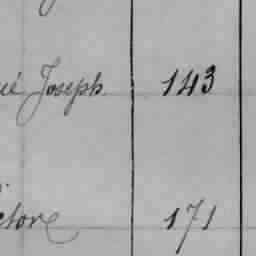 ué Joseph. 143
ctore 171